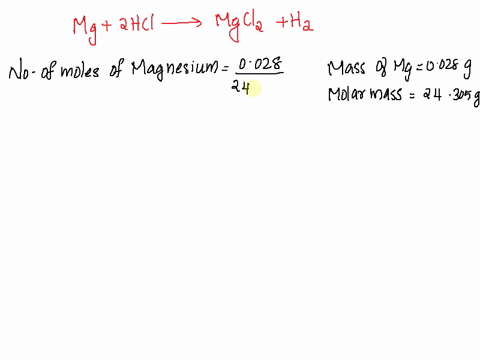 Mg + 2HCl ⟶ MgCl₂ + H₂
No. of moles of Magnesium = 0.028
24
Mass of Mg = 0.028 g
Molar mass = 24.305 g